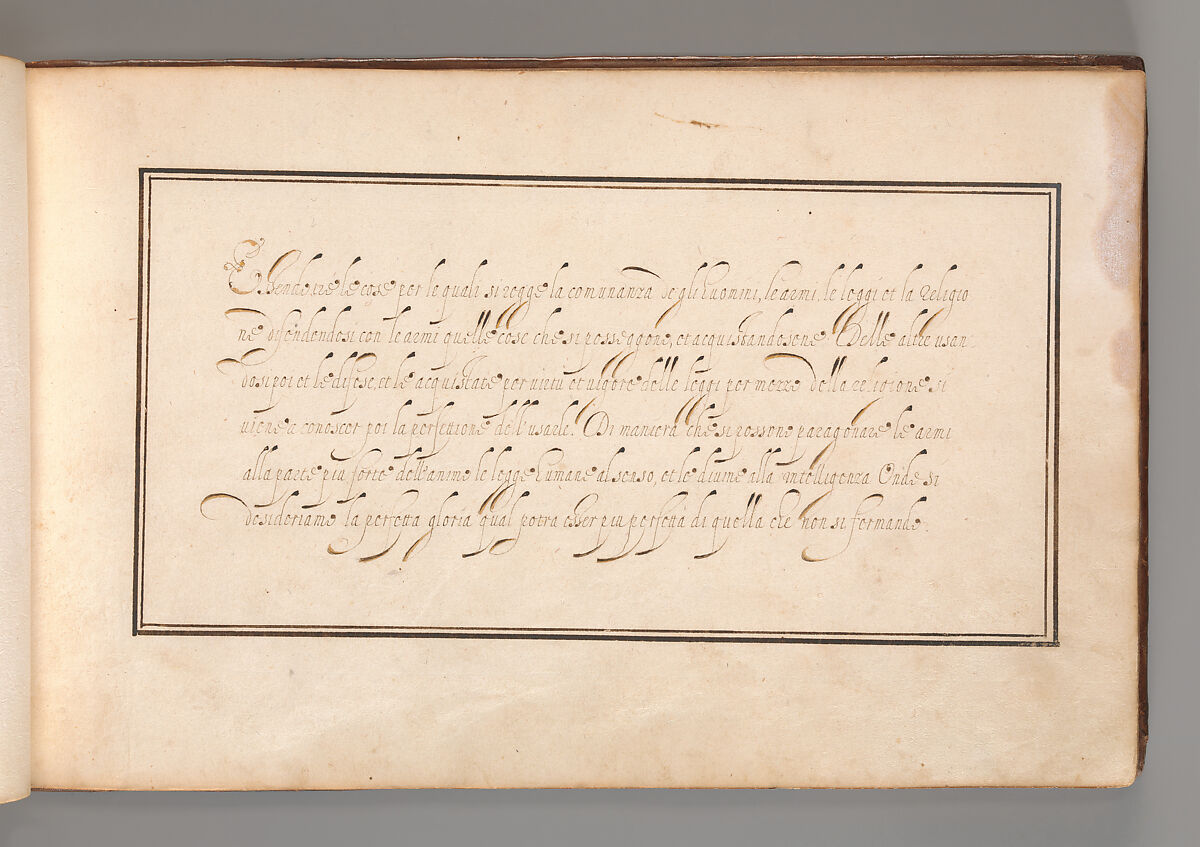 Essendo tré le cose per le quali si regge la comunanza de gli huomini, le armi, le leggi et la religio
ne difendendosi con le armi quelle cose che si posseggono, et acquistandosene delle altre usan-
dosi poi et le difese, et le acquistate per virtu et vigore delle leggi per mezzo della religione si
viene à conoscer poi la perfettione dell'usarle. Di maniera che si possono paragonare le armi
alla parte piu forte dell'animo le legge humane al senso, et le divine alla intelligenza Onde si
desideriamo la perfetta gloria qual potra esser piu perfetta di quella che non si fermando